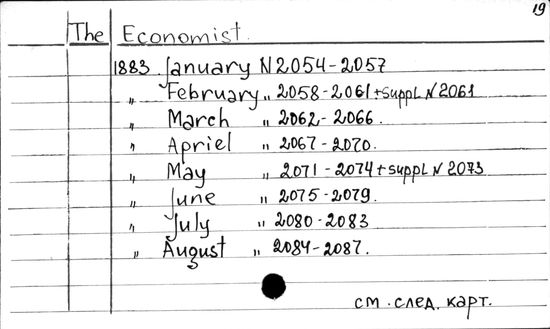 19
The Economist.
1883 January N 2054-2057
" February " 2058-2061 + suppl. N 2061
" March " 2062-2066.
" Apriel " 2067-2070.
" May " 2071-2074 + suppl N 2073
" June " 2075-2079.
" July " 2080-2083
" August " 2084-2087.
см. след. карт.